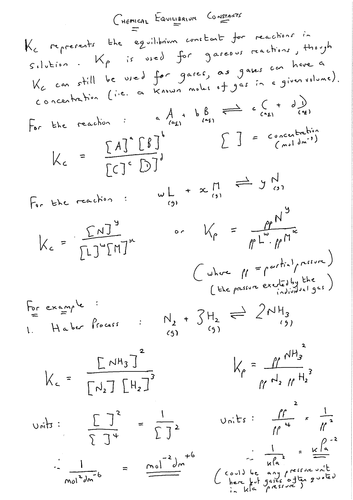 CHEMICAL EQUILIBRIUM CONSTANTS
Kc represents the equilibrium constant for reactions in
solution. Kp is used for gaseous reactions, though
Kc can still be used for gases, as gases can have a
concentration (i.e. a known moles of gas in a given volume).
For the reaction : aA(aq) + bB(aq) ⇌ cC(aq) + dD(aq)
Kc = [A]^a [B]^b / [C]^c [D]^d
[ ] = concentration
(mol dm⁻³)
For the reaction : wL(g) + xM(g) ⇌ yN(g)
Kc = [N]^y / [L]^w [M]^x or Kp = ppN^y / ppL^w . ppM^x
(where pp = partial pressure)
(the pressure exerted by the
individual gas)
For example :
1. Haber Process : N₂(g) + 3H₂(g) ⇌ 2NH₃(g)
Kc = [NH₃]² / [N₂] [H₂]³
Kp = pp NH₃² / pp N₂ pp H₂³
units : [ ]² / [ ]⁴ = 1 / [ ]²
units : pp² / pp⁴ = 1 / pp²
∴ 1 / mol² dm⁻⁶ = mol⁻² dm⁺⁶
∴ 1 / kPa² = kPa⁻²
(could be any pressure unit
here but gases often quoted
in kPa pressure)